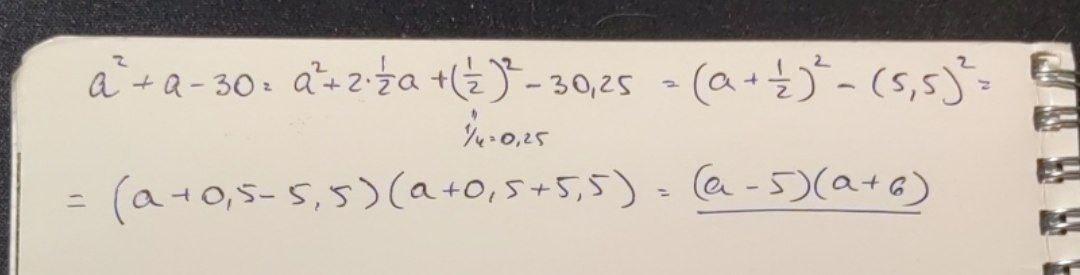 a² + a - 30 = a² + 2·½a + (½)² - 30,25 = (a + ½)² - (5,5)² =
1/4 = 0,25
= (a + 0,5 - 5,5)(a + 0,5 + 5,5) = (a - 5)(a + 6)